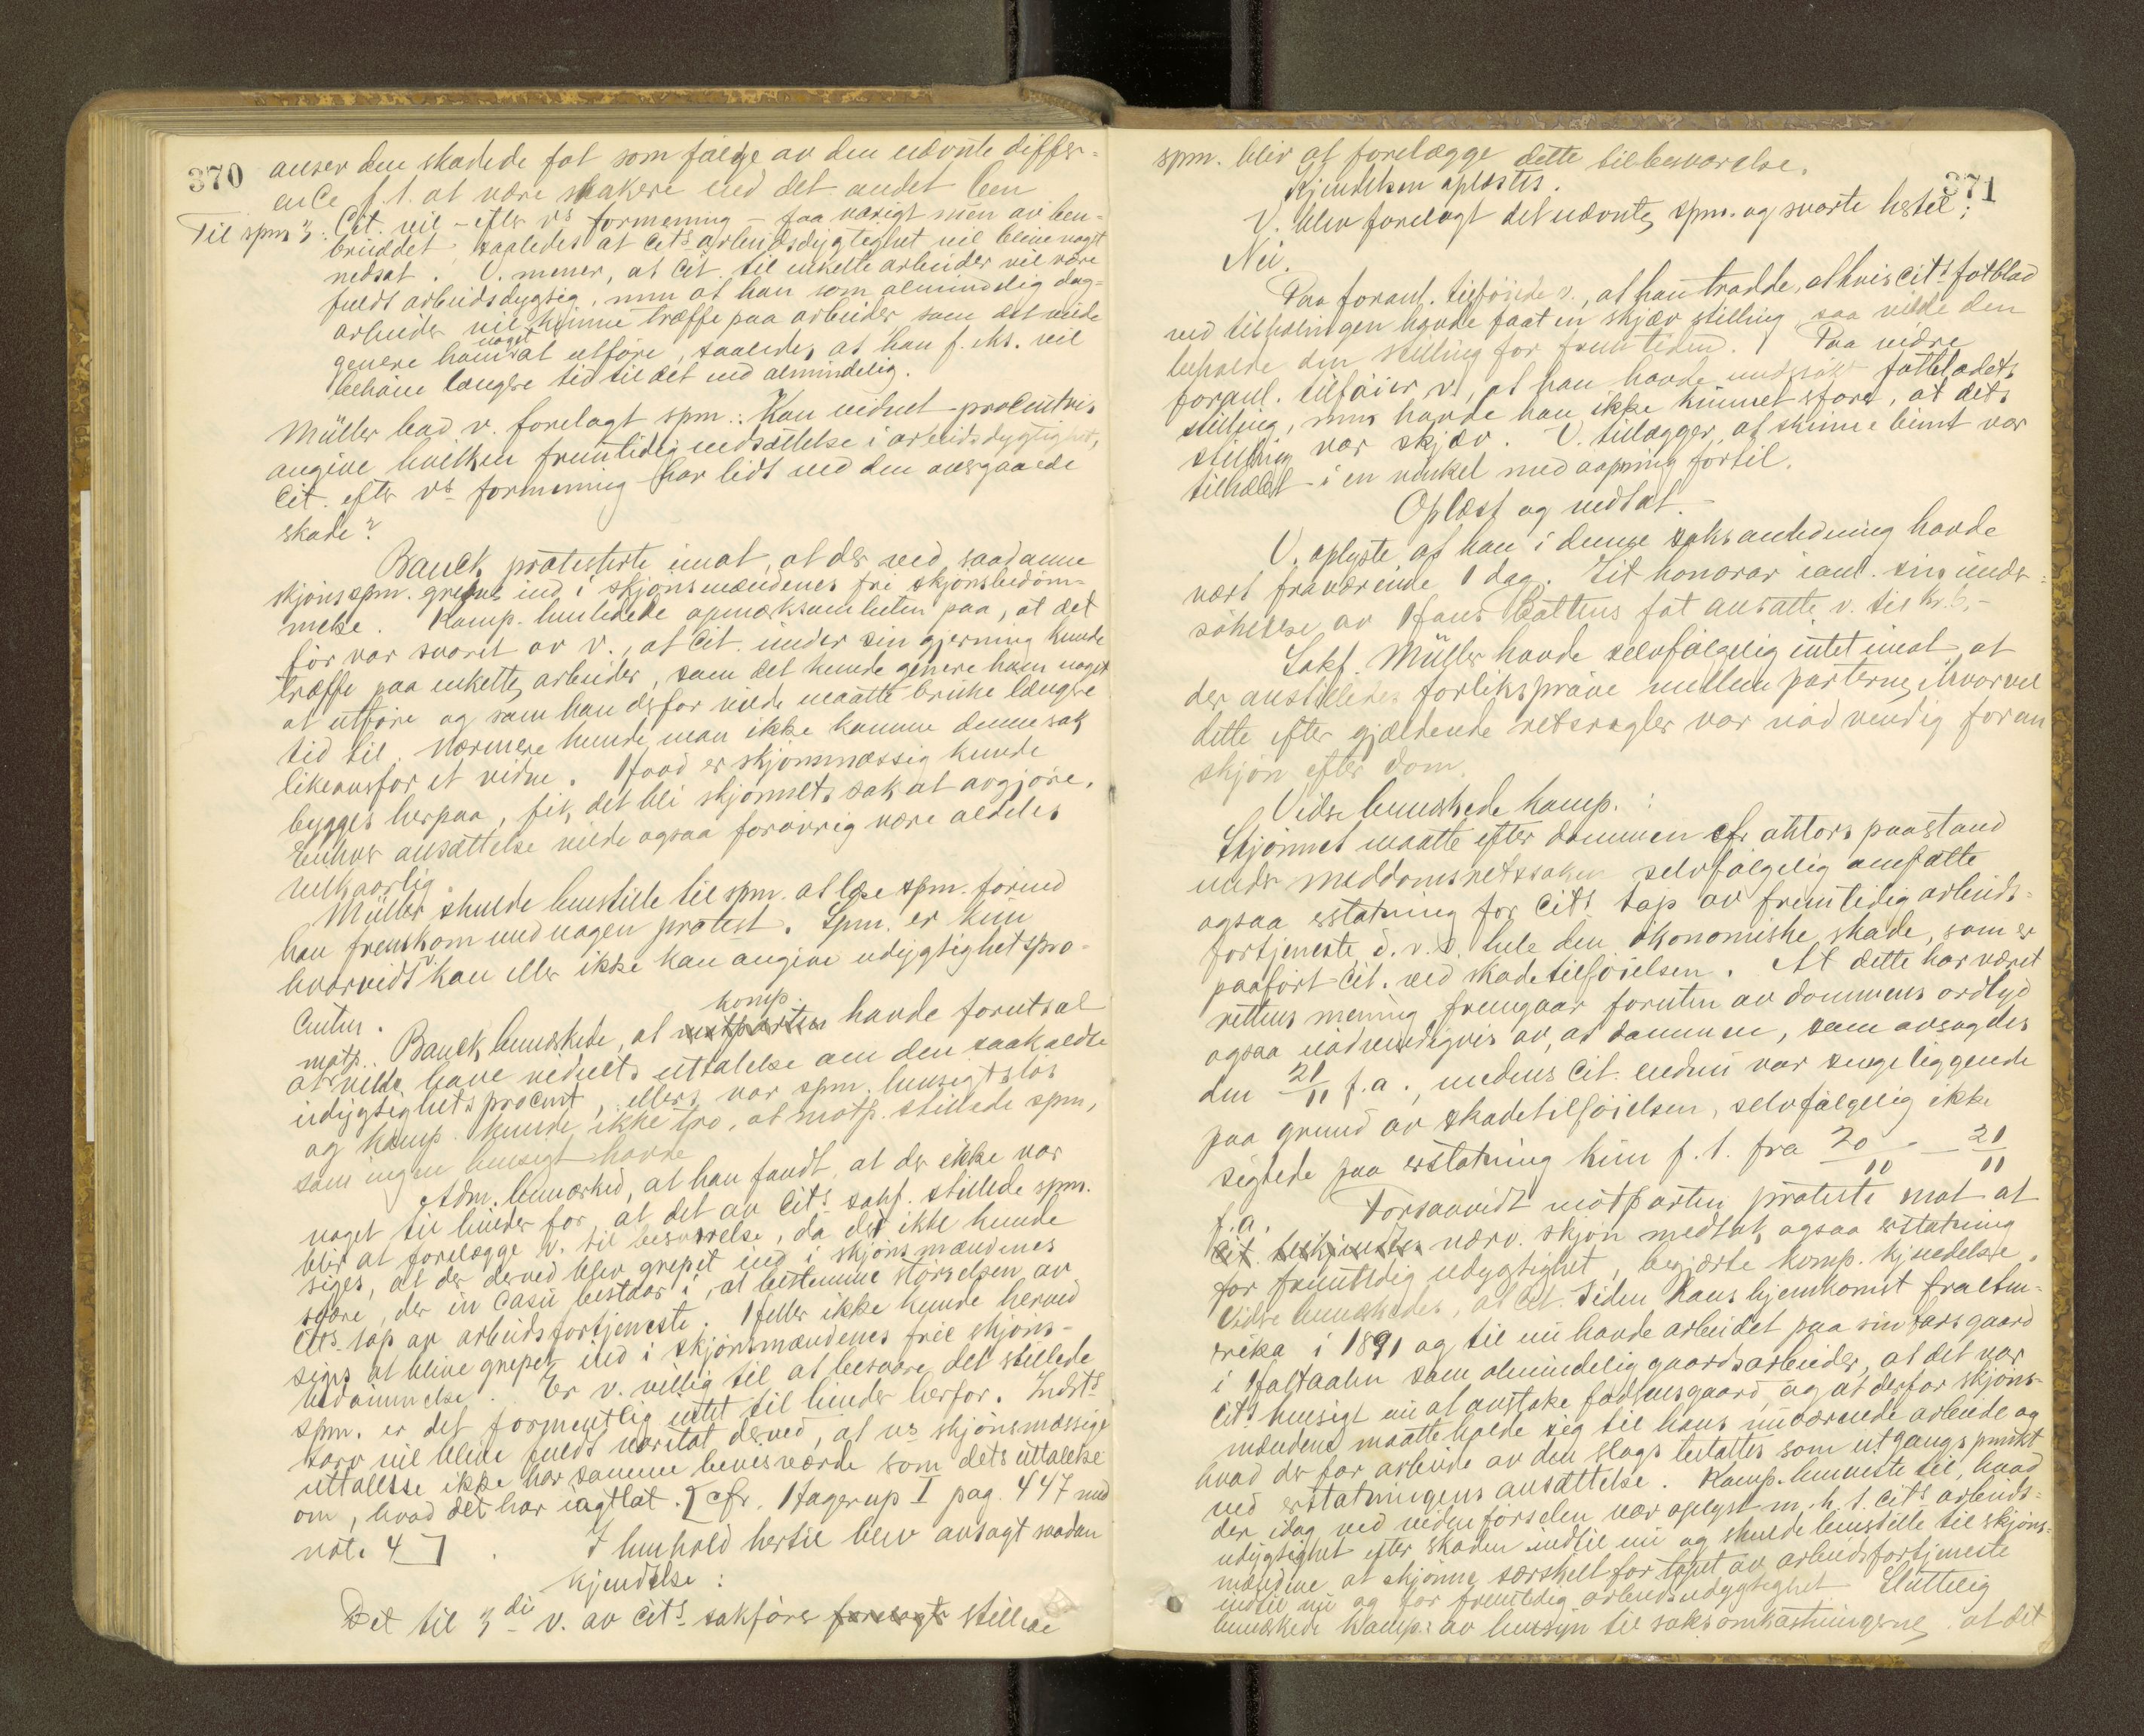 370
anser den skadede fot som følge av den nævnte differ-
ence f. t. at være svakere end det andet ben
Til spm 3: Cit. vil – efter v's formening – faa varigt mén av ben-
bruddet, saaledes at cits arbeidsdygtighet vil blive noget
nedsat. V. mener, at cit. til enkelte arbeider vil være
fuldt arbeidsdygtig, men at han som almindelig dag-
arbeider vil kunne træffe paa arbeider som det vilde
genere ham noget at utføre, saaledes at han f. eks. vil
behøve længere tid til det end almindelig.
Müller bad v. forelagt spm.: Kan vidnet procentvis
angive hvilken fremtidig nedsættelse i arbeidsdygtighet,
Cit. efter vs formening har lidt ved den overgaaede
skade?
Banck protesterte imot, at der ved saadanne
skjønsspm. gripes ind i skjønsmændenes fri skjønsbedøm-
melse. Komp. henledede opmerksomheten paa, at det
før var svaret av v., at cit. under sin gjerning kunde
træffe paa enkelte arbeider, som det kunde genere ham noget
at utføre og som han derfor vilde maatte bruke længere
tid til. Nærmere kunde man ikke komme denne sak
likeoverfor et vidne. Hvad er skjønmæssig kunde
bygges herpaa, fik det bli skjønnets sak at avgjøre.
Enhver ansættelse vilde ogsaa forøvrig være aldeles
vilkaarlig.
Müller skulde henstille til spm. at læse spm. førend
han fremkom med nogen protest. Spm. er kun
hvorvidt v. kan eller ikke kan angive udygtighetspro-
center.
Banck bemerkede, at motparten komp. havde forutsat
at motp. vilde have vidnets uttalelse om den saakaldte
udygtighetsprocent, ellers var spm. hensigtsløs
og komp. kunde ikke tro, at motp. stillede spm,
som ingen hensigt havde
Adm. bemærked, at han fandt, at der ikke var
noget til hinder for, at det av Cits sakf. stillede spm.
blir at forelægge v. til besvarelse, da det ikke kunde
siges, at der derved blev grepet ind i skjønsmændenes
svare, der in casu bestaar i, at bestemme størrelsen av
Cits tap av arbeidsfortjeneste. Heller ikke kunde herved
siges at blive grepet ind i skjønsmændenes frie skjøns-
bedømmelse. Er v. villig til at besvare det stillede
spm. er det formentlig intet til hinder herfor. Indsts
tarv vil blive fuldt varetat derved, at vs skjønsmæssige
uttalelse ikke har samme bevisværde som dets uttalelse
om, hvad det har iagttat. [cfr. Hagerup I pag. 447 med
note 4].
I henhold hertil blev avsagt saadan
kjendelse:
Det til 3di v. av cits sakfører forelagte stillede
371
spm. blir at forelægge dette til besvarelse.
Kjendelsen oplæstes.
V. blev forelagt det nævnte spm. og svarte hertil:
Nei.
Paa foranl. tilføiede v., at han trodde, at hvis cits fotblad
ved tilhelingen havde faat en skjæv stilling saa vilde den
beholde den stilling for fremtiden. Paa videre
foranl. tilføier v., at han havde undersøkt fotbladets
stilling, men havde han ikke kunnet erfare, at dets
stilling var skjæv. V. tillægger, at skinnebenet var
tilhelet i en vinkel med aapning fortil.
Oplæst og vedtat.
V. oplyste at han i denne saks anledning havde
vært fraværende 1 dag. Sit honorar ianl. sin under-
søkelse av Hans Bottens fot ansatte v. til kr. 6,-
Sakf. Müller havde selvfølgelig intet imot, at
der anstilledes forliksprøve mellem parterne, hvorvel
dette efter gjældende retsregler var nødvendig foran
skjøn efter dom.
Videre bemerkede komp.:
Skjønnet maatte efter dommen cfr aktors paastand
under meddomsretssaken selvfølgelig omfatte
ogsaa erstatning for Cits tap av fremtidig arbeids-
fortjeneste, d. v. s. hele den økonomiske skade, som er
paaført Cit. ved skadetilføielsen. At dette har været
rettens mening fremgaar foruten av dommens ordlyd
ogsaa nødvendigvis av, at dommen, som avsagdes
den 21/11 f. a., medens Cit. endnu var sengeliggende
paa grund av skadetilføielsen, selvfølgelig ikke
sigtede paa erstatning kun f. t. fra 20/10 – 21/11
f. a.
Forsaavidt motparten proteste mot at
nærv. skjøn medtok ogsaa erstatning
for fremtidig udygtighet, begjærte komp. kjendelse.
Videre bemerkedes, at cit. siden hans hjemkomst fra Am-
erika i 1891 og til nu havde arbeidet paa sin fars gaard
i Haltdalen som almindelig gaardsarbeider, at det var
Cits hensigt nu at overtake fædrensgaard, og at derfor skjøns-
mændene maatte holde sig til hans nuværende arbeide og
hvad der for arbeide av den slags betaltes som utgangspunkt
ved erstatningens ansættelse. Komp. henviste til, hvad
der idag ved vidneførselen var oplyst m. h. t. Cits arbeids-
udygtighet efter skaden indtil nu og skulde henstille til skjøns-
mændene at skjønne særskilt for tapet av arbeidsfortjeneste
indtil nu og for fremtidig arbeidsudygtighet. Sluttelig
bemerkede komp. av hensyn til saksomkostningerne, at det